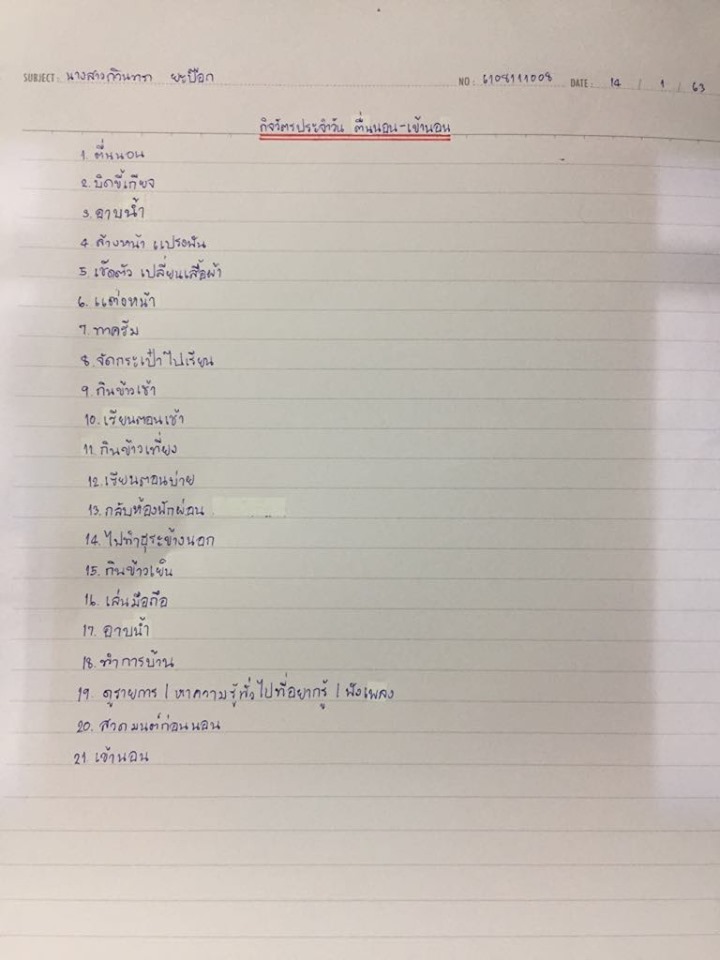 SUBJECT: นางสาวกวินทรา ยะป๊อก NO: 6108111008 DATE: 14 / 1 / 63
กิจวัตรประจำวัน ตื่นนอน-เข้านอน
1. ตื่นนอน
2. บิดขี้เกียจ
3. อาบน้ำ
4. ล้างหน้า แปรงฟัน
5. เช็ดตัว เปลี่ยนเสื้อผ้า
6. แต่งหน้า
7. ทาครีม
8. จัดกระเป๋าไปเรียน
9. กินข้าวเช้า
10. เรียนตอนเช้า
11. กินข้าวเที่ยง
12. เรียนตอนบ่าย
13. กลับห้องพักผ่อน
14. ไปทำธุระข้างนอก
15. กินข้าวเย็น
16. เล่นมือถือ
17. อาบน้ำ
18. ทำการบ้าน
19. ดูรายการ / หาความรู้ทั่วไปที่อยากรู้ / ฟังเพลง
20. สวดมนต์ก่อนนอน
21. เข้านอน